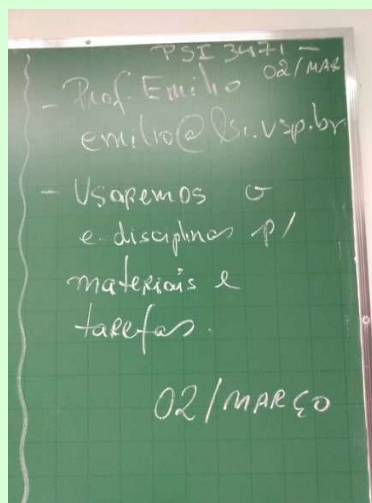 PSI 3471 -
02/MAR
- Prof. Emilio
emilio@lsi.usp.br
- Usaremos o
e-disciplinas p/
materiais e
tarefas.
02/MARÇO